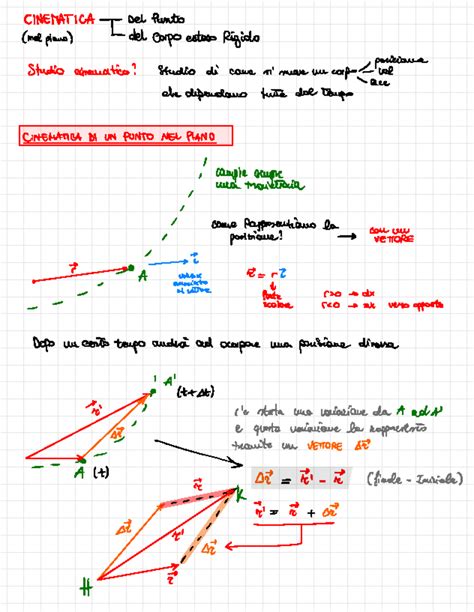 CINEMATICA del Punto
(nel piano) del Corpo esteso Rigido
Studio cinematico? Studio di come si muove un corpo posizione
vel
acc
che dipendono tutte dal tempo
CINEMATICA DI UN PUNTO NEL PIANO
compie sempre
una traiettoria
come Rappresentiamo la
posizione?
con un
VETTORE
r⃗
A
r⃗
r⃗ = r
Parte
scalare
r>0 → dx
r<0 → sx verso opposto
Dopo un certo tempo andrà ad occupare una posizione diversa
A' (t+Δt)
r⃗'
Δr⃗
A (t)
c'è stata una variazione da A ad A'
e questa variazione la rappresento
tramite un VETTORE Δr⃗
Δr⃗ = r⃗' - r⃗ (finale - Iniziale)
r⃗' = r⃗ + Δr⃗
r⃗
K
Δr⃗
r⃗'
Δr⃗
H
r⃗